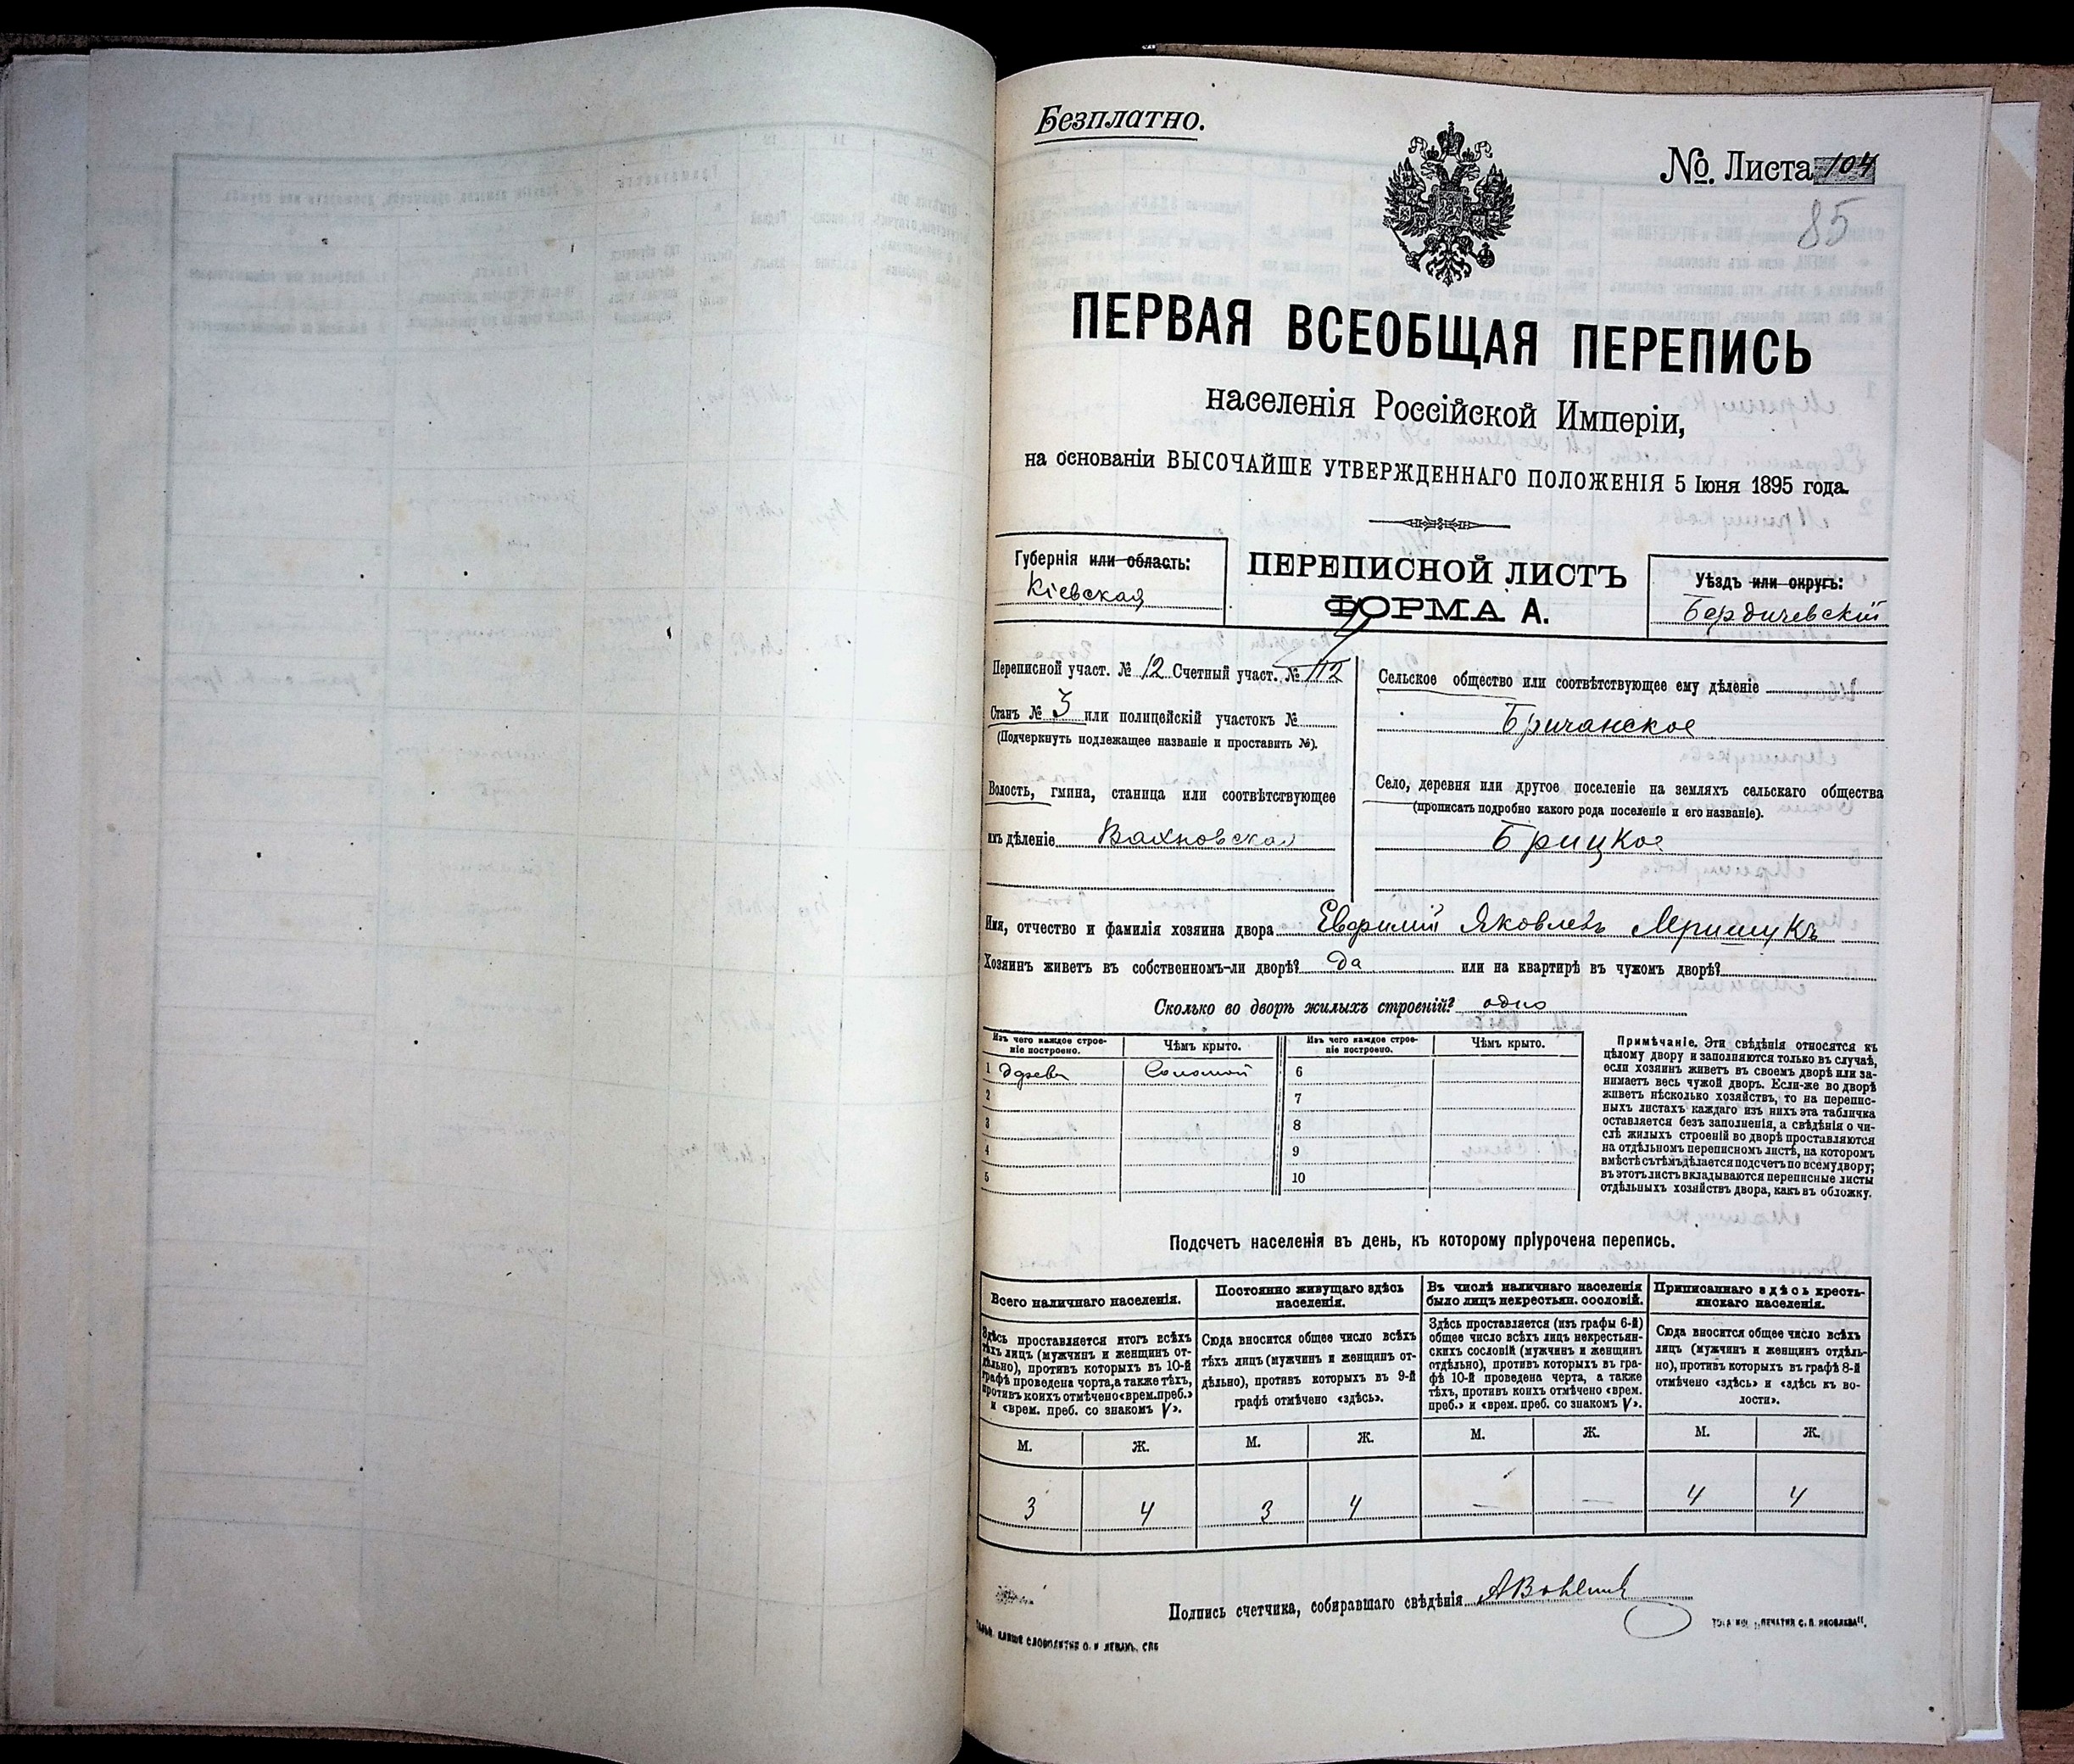 Безплатно.
№ Листа 104
85
ПЕРВАЯ ВСЕОБЩАЯ ПЕРЕПИСЬ
населенія Россійской Имперіи,
на основаніи ВЫСОЧАЙШЕ УТВЕРЖДЕННАГО ПОЛОЖЕНІЯ 5 Іюня 1895 года.
Губернія или область:
Кіевская
ПЕРЕПИСНОЙ ЛИСТЪ
ФОРМА А.
Уѣздъ или округъ:
Бердичевскій
Переписной участ. № 12 Счетный участ. № 112
Станъ № 3 или полицейскій участокъ №
(Подчеркнуть подлежащее названіе и проставить №).
Волость, гмина, станица или соотвѣтствующее
ихъ дѣленіе Вахновская
Сельское общество или соотвѣтствующее ему дѣленіе
Бричанское
Село, деревня или другое поселеніе на земляхъ сельскаго общества
(прописать подробно какого рода поселеніе и его названіе).
Брицкое
Имя, отчество и фамилія хозяина двора Евфимій Яковлевъ Мришукъ
Хозяинъ живетъ въ собственномъ-ли дворѣ? да или на квартирѣ въ чужомъ дворѣ?
Сколько во дворѣ жилыхъ строеній? одно
Изъ чего каждое строе-
ніе построено.
Чѣмъ крыто.
Изъ чего каждое строе-
ніе построено.
Чѣмъ крыто.
1 дерева Соломой 6
2 7
3 8
4 9
5 10
Примѣчаніе. Эти свѣдѣнія относятся къ
цѣлому двору и заполняются только въ случаѣ,
если хозяинъ живетъ въ своемъ дворѣ или за-
нимаетъ весь чужой дворъ. Если-же во дворѣ
живетъ нѣсколько хозяйствъ, то на перепис-
ныхъ листахъ каждаго изъ нихъ эта табличка
оставляется безъ заполненія, а свѣдѣнія о чи-
слѣ жилыхъ строеній во дворѣ проставляются
на отдѣльномъ переписномъ листѣ, на которомъ
вмѣстѣ съ тѣмъ дѣлается подсчетъ по всему двору;
въ этотъ листъ вкладываются переписные листы
отдѣльныхъ хозяйствъ двора, какъ въ обложку.
Подсчетъ населенія въ день, къ которому пріурочена перепись.
Всего наличнаго населенія.
Постоянно живущаго здѣсь
населенія.
Въ числѣ наличнаго населенія
было лицъ некрестьян. сословій.
Приписаннаго здѣсь кресть-
янскаго населенія.
Здѣсь проставляется итогъ всѣхъ
тѣхъ лицъ (мужчинъ и женщинъ от-
дѣльно), противъ которыхъ въ 10-й
графѣ проведена чорта, а также тѣхъ,
противъ коихъ отмѣчено «врем. преб.»
и «врем. преб. со знакомъ V».
Сюда вносится общее число всѣхъ
тѣхъ лицъ (мужчинъ и женщинъ от-
дѣльно), противъ которыхъ въ 9-й
графѣ отмѣчено «здѣсь».
Здѣсь проставляется (изъ графы 6-й)
общее число всѣхъ лицъ некрестьян-
скихъ сословій (мужчинъ и женщинъ
отдѣльно), противъ которыхъ въ гра-
фѣ 10-й проведена черта, а также
тѣхъ, противъ коихъ отмѣчено «врем.
преб.» и «врем. преб. со знакомъ V».
Сюда вносится общее число всѣхъ
лицъ (мужчинъ и женщинъ отдѣль-
но), противъ которыхъ въ графѣ 8-й
отмѣчено «здѣсь» и «здѣсь къ во-
лости».
М. Ж. М. Ж. М. Ж. М. Ж.
3 4 3 4 — — 4 4
Подпись счетчика, собиравшаго свѣдѣнія